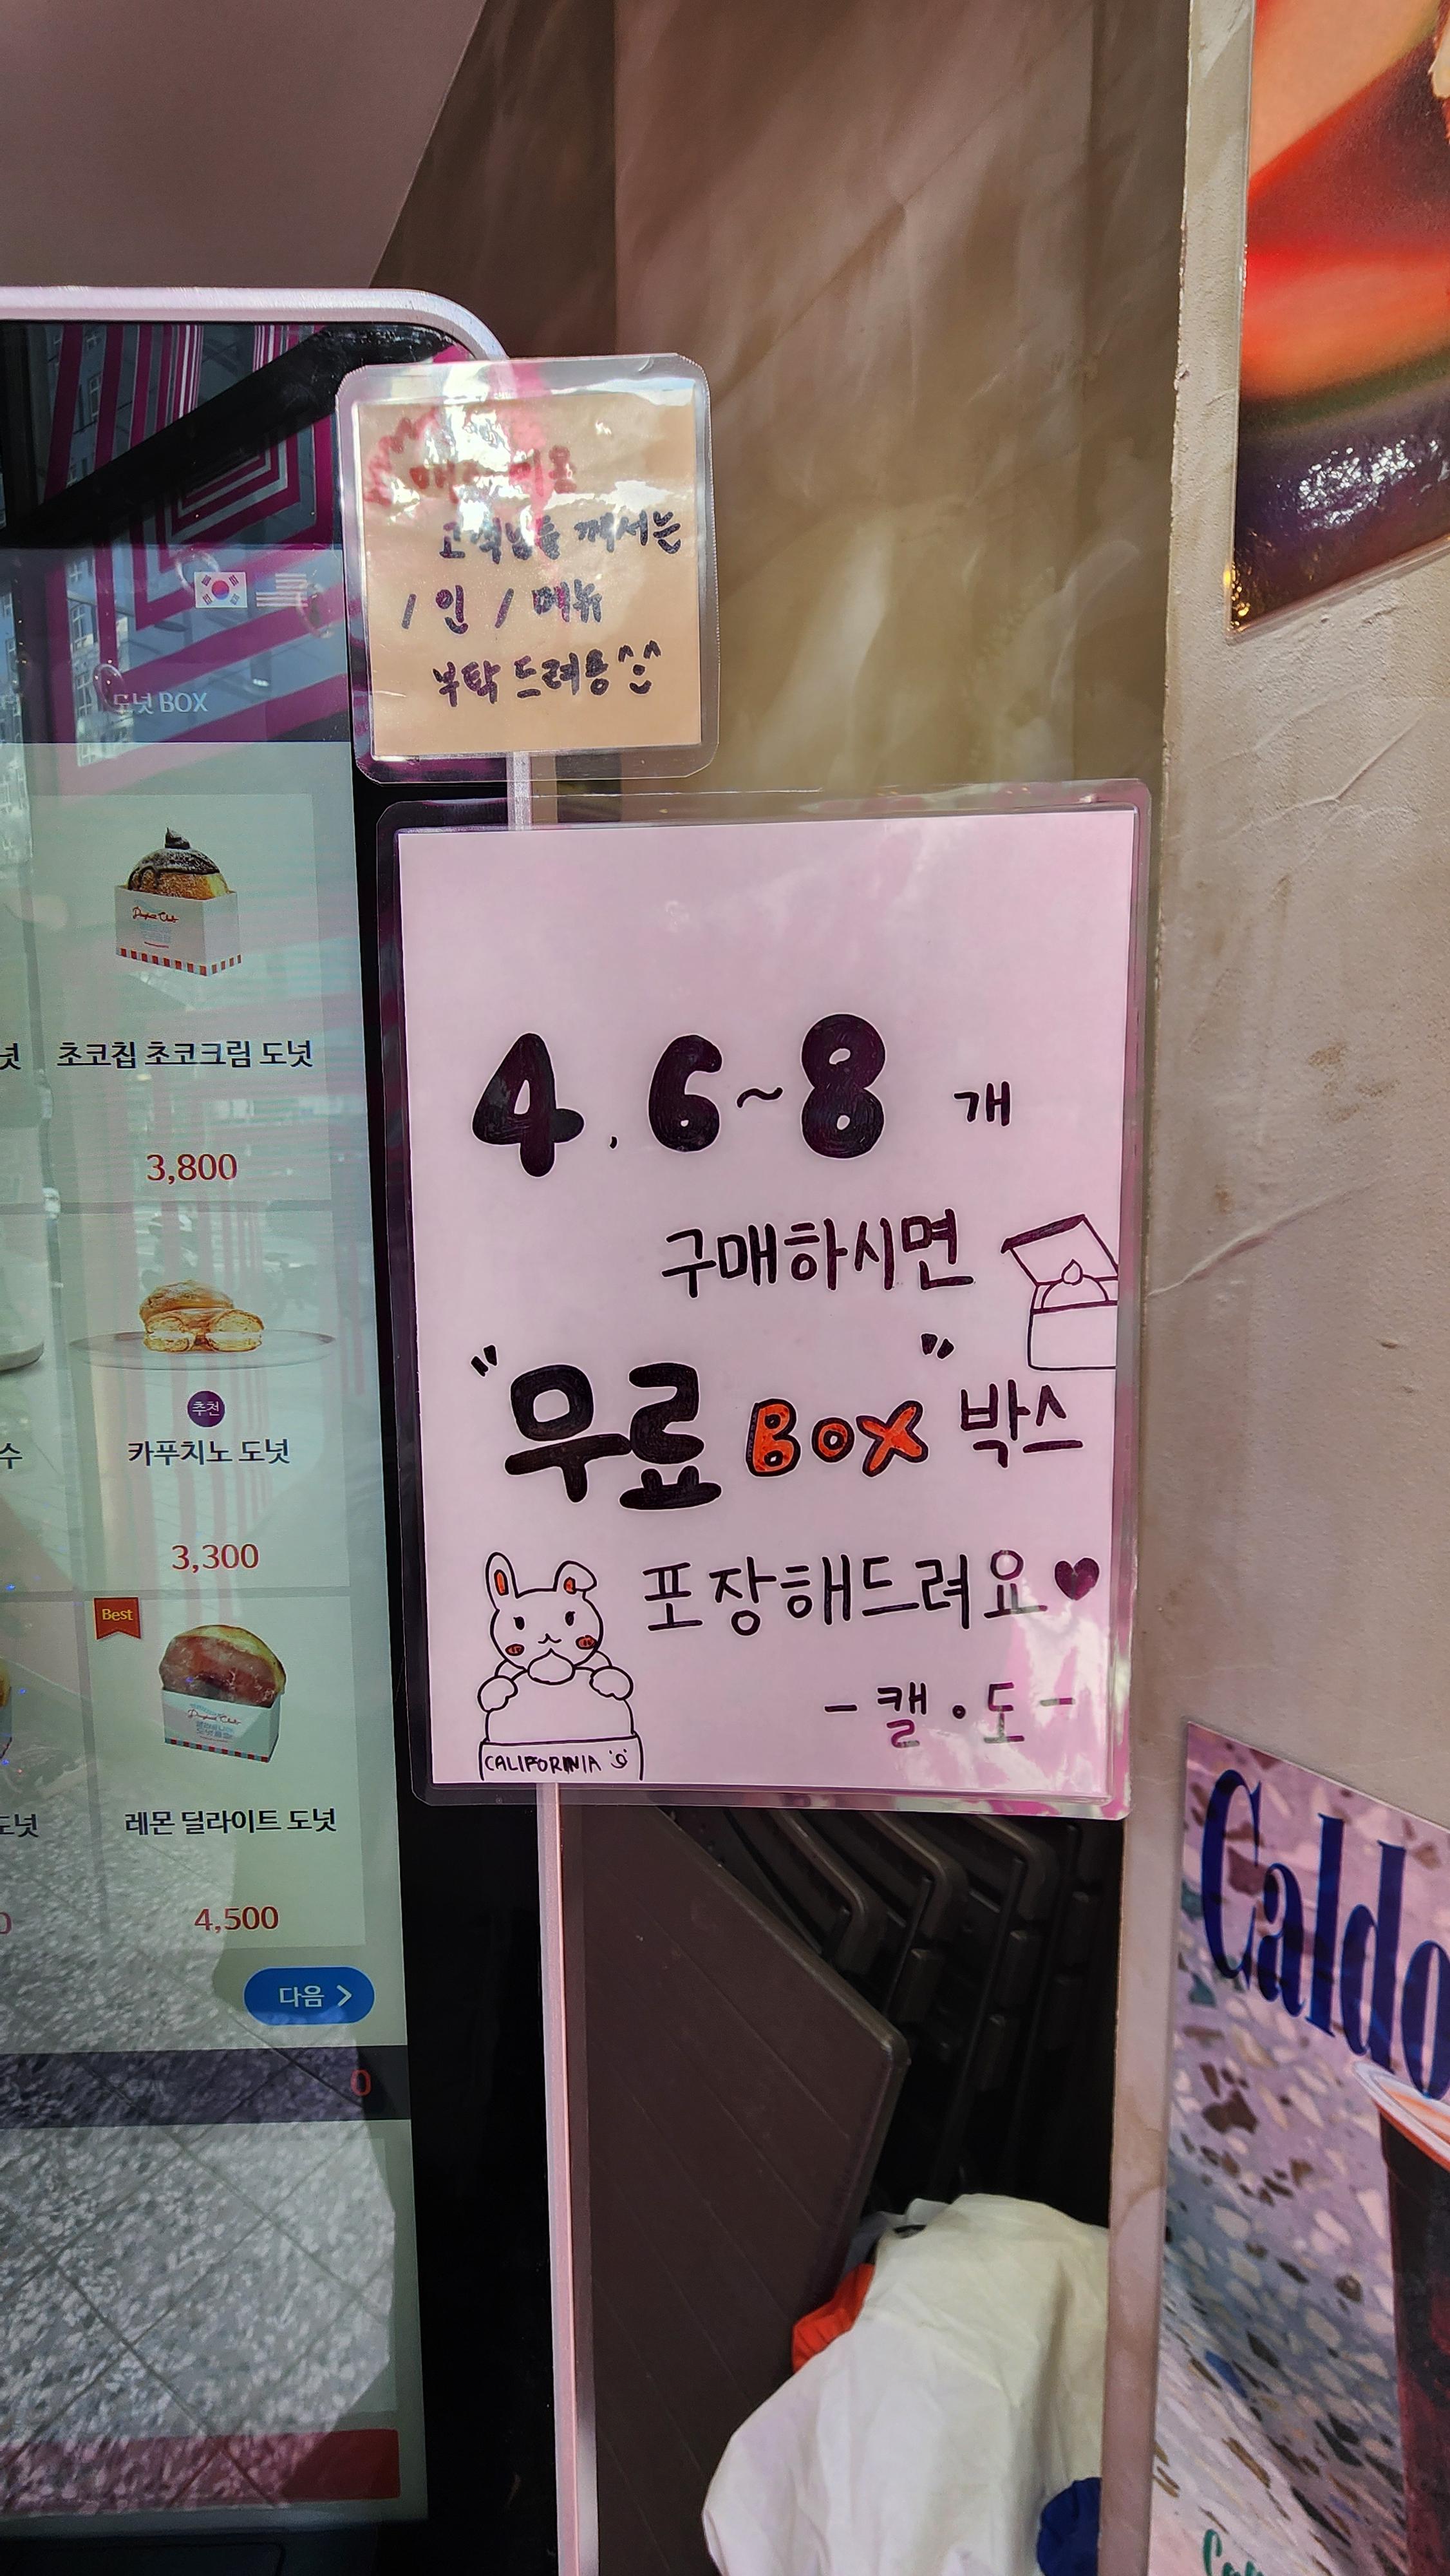 매장 이용
고객님들 께서는
1인 1메뉴
부탁드려용^^
도넛 BOX
넛
초코칩 초코크림 도넛
3,800
추천
수
카푸치노 도넛
3,300
Best
도넛
레몬 딜라이트 도넛
0
4,500
다음 >
0
4, 6~8 개
구매하시면
"무료 BOX" 박스
포장해드려요♥
- 캘·도 -
CALIFORINIA
Caldo